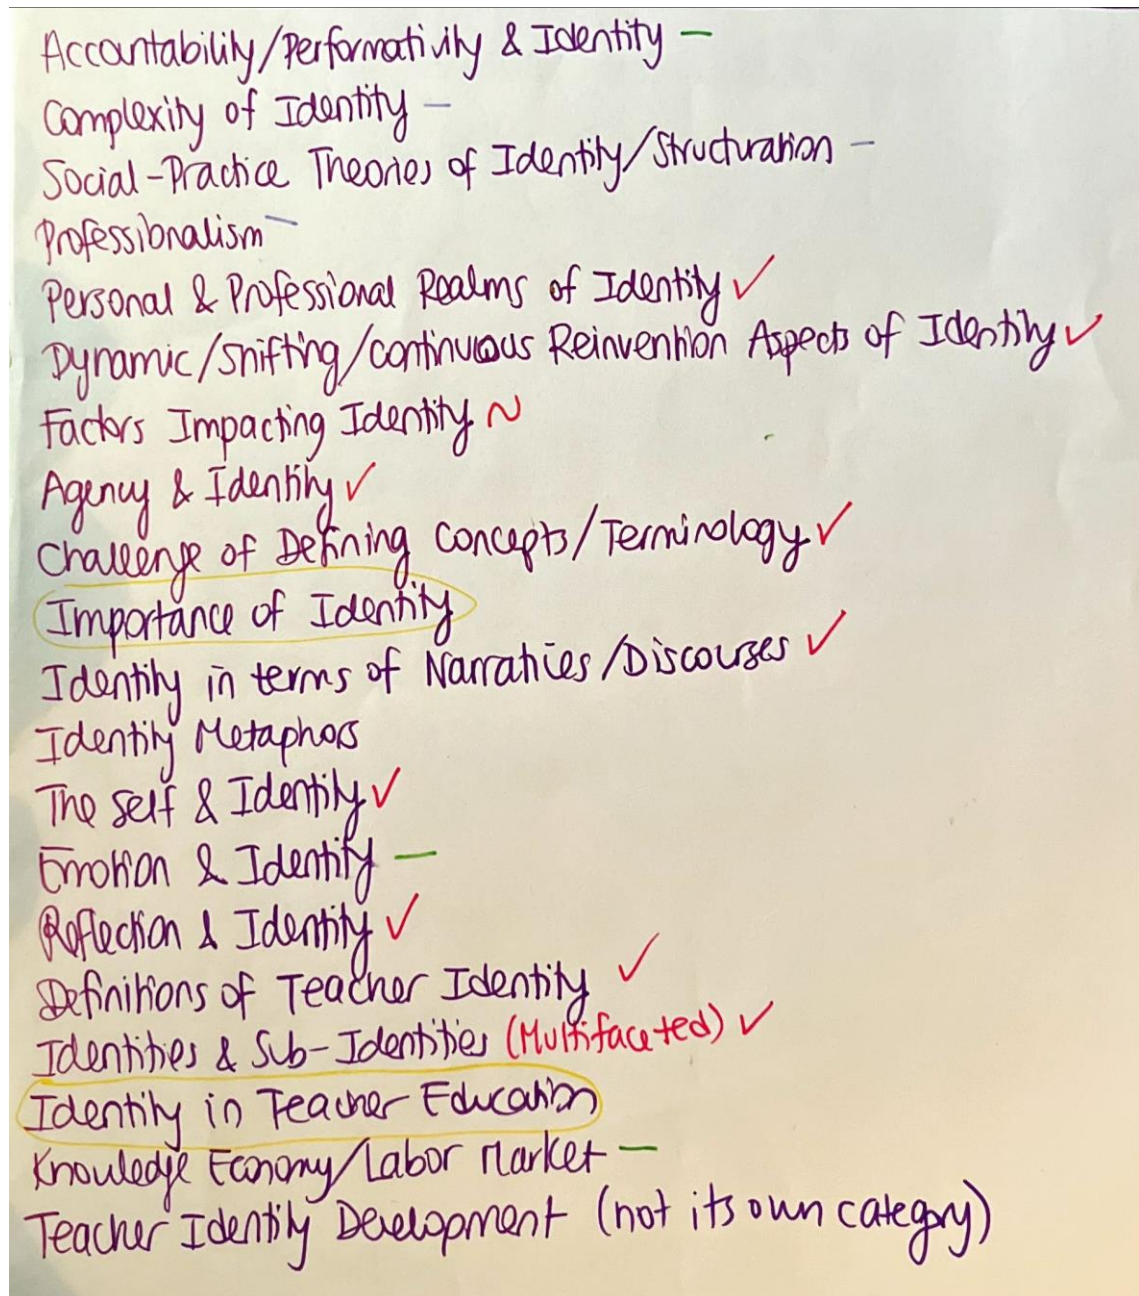 Accountability/Performativity & Identity –
Complexity of Identity –
Social-Practice Theories of Identity/Structuration –
Professionalism –
Personal & Professional Realms of Identity ✓
Dynamic/Shifting/Continuous Reinvention Aspects of Identity ✓
Factors Impacting Identity ~
Agency & Identity ✓
Challenge of Defining Concepts/Terminology ✓
Importance of Identity
Identity in terms of Narratives/Discourses ✓
Identity Metaphors
The Self & Identity ✓
Emotion & Identity –
Reflection & Identity ✓
Definitions of Teacher Identity ✓
Identities & Sub-Identities (Multifaceted) ✓
Identity in Teacher Education
Knowledge Economy/Labor Market –
Teacher Identity Development (not its own category)